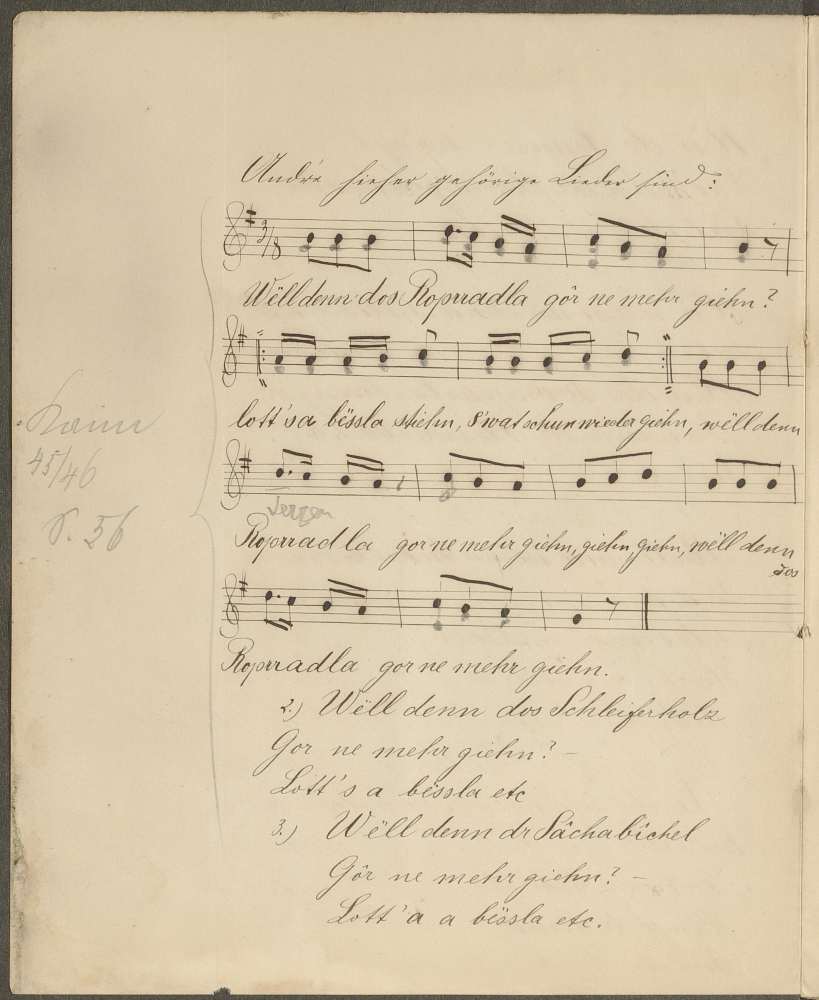 Andre hieher gehörige Lieder sind:
3/8
Wëll denn dos Roprradla gôr ne mehr giehn?
lott's a bëssla stiehn, s'wat schun wieder giehn, wëll denn
45/46
S. 56
Roprradla gor ne mehr giehn, giehn, giehn, wëll denn
dos
Roprradla gor ne mehr giehn.
2.) Wëll denn dos Schleiferholz
Gor ne mehr giehn? –
Lott's a bëssla etc
3.) Wëll denn dr Sâchabîchel
Gôr ne mehr giehn? –
Lott'a a bëssla etc.